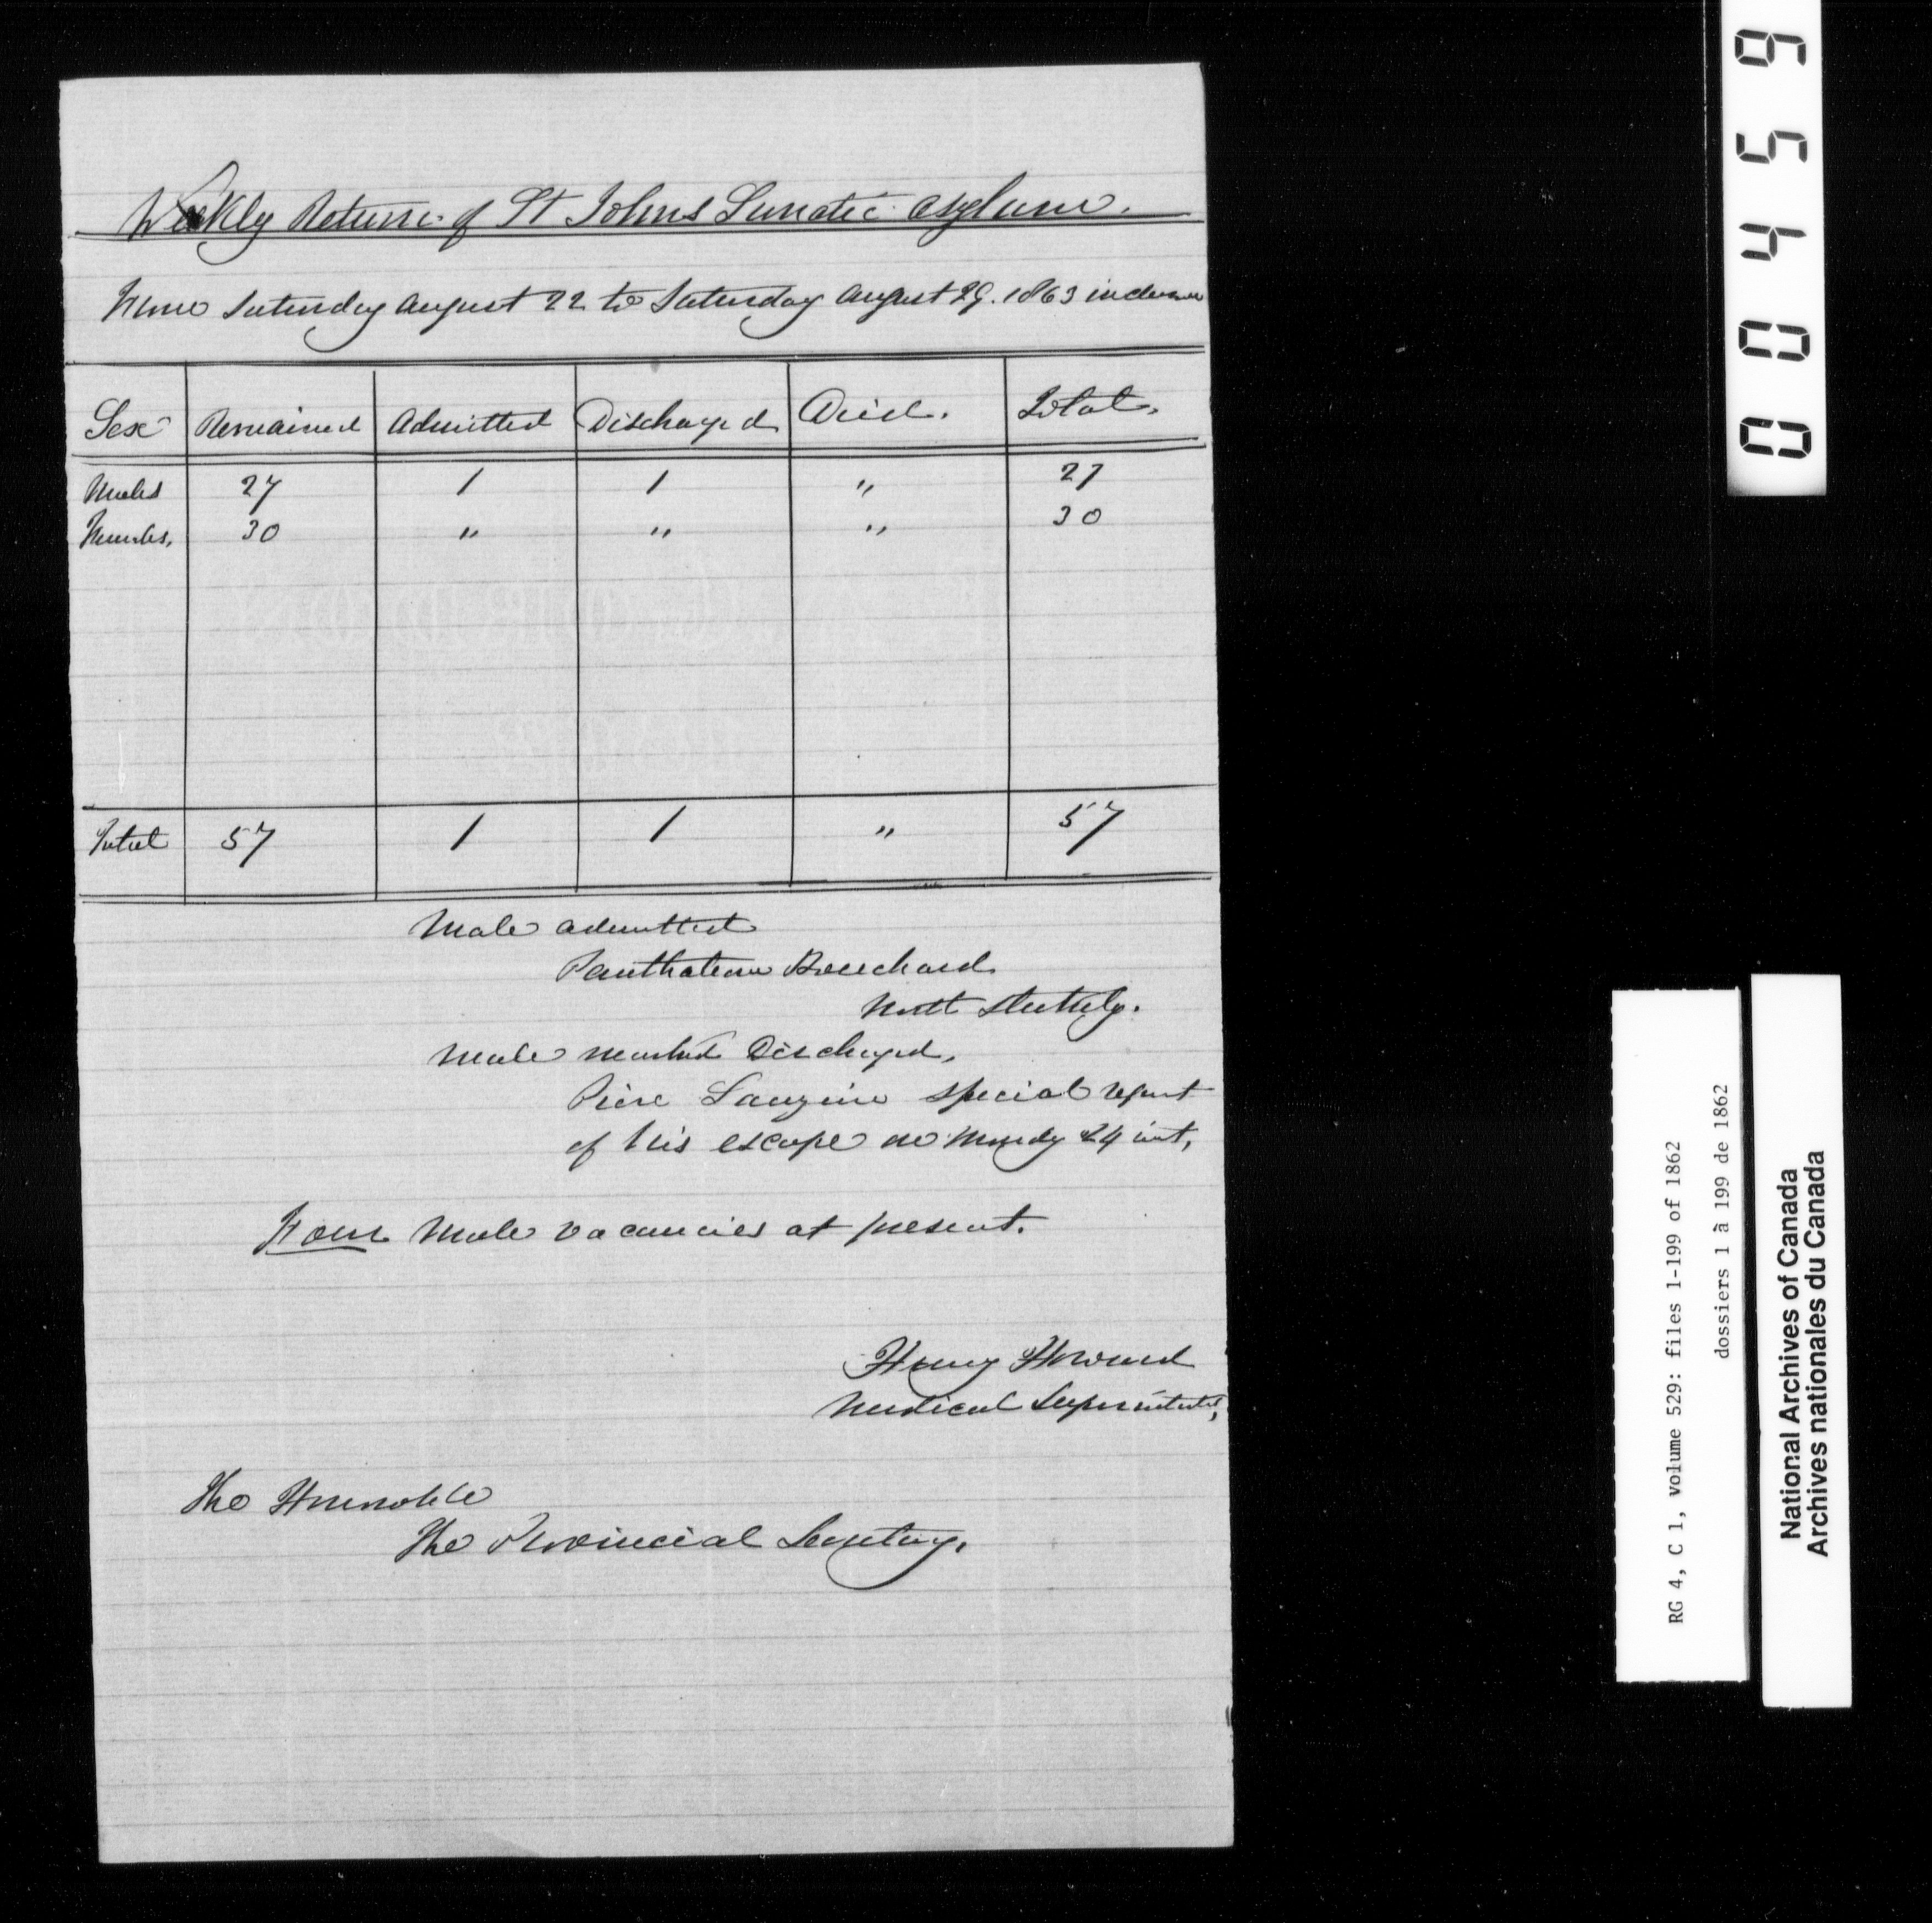 Weekly Return of St Johns Lunatic Asylum.
From Saturday August 22 to Saturday August 29. 1863 inclusive
Sex Remained Admitted Discharged Died. Total.
Males 27 1 1 " 27
Females. 30 " " " 30
Total 57 1 1 " 57
Male admitted
Bouchard
North
Male marked Discharged,
special report
of his escape on Monday 24 inst,
Four Male vacancies at present.
Henry Howard
Medical Superintendent,
The Honorable
The Provincial Secretary.
00459
RG 4, C 1, volume 529: files 1-199 of 1862
dossiers 1 à 199 de 1862
National Archives of Canada
Archives nationales du Canada